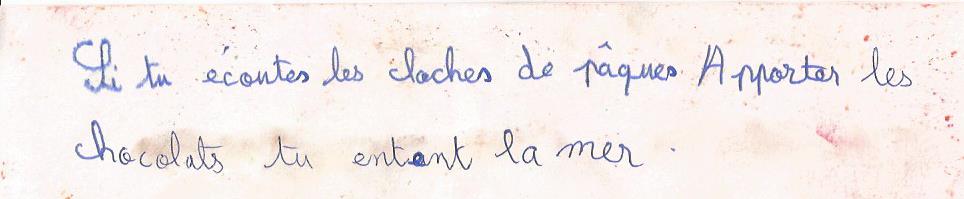 Si tu écoutes les cloches de pâques Apporter les
chocolats tu entent la mer.